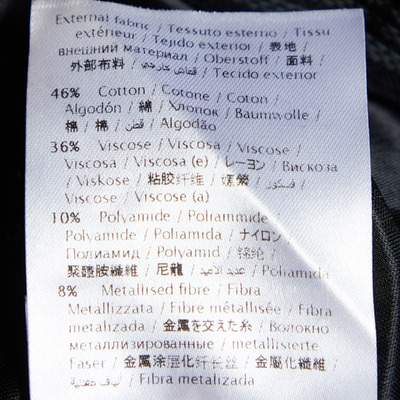 External fabric / Tessuto esterno / Tissu
extérieur / Tejido exterior / 表地 /
внешний материал / Oberstoff / 面料 /
外部布料 / قماش خارجي / Tecido exterior
46% Cotton / Cotone / Coton /
Algodón / 綿 / Хлопок / Baumwolle /
棉 / 棉 / قطن / Algodão
36% Viscose / Viscosa / Viscose /
Viscosa / Viscosa (e) / レーヨン / Вискоза
/ Viskose / 粘胶纤维 / 嫘縈 / فسكوز /
Viscose / Viscose (a)
10% Polyamide / Poliammide /
Polyamide / Poliamida / ナイロン /
Полиамид / Polyamid / 锦纶 /
聚醯胺纖維 / 尼龍 / Poliamida
8% Metallised fibre / Fibra
Metallizzata / Fibre métallisée / Fibra
metalizada / 金属を交えた糸 / Волокно
металлизированные / metallisierte
Faser / 金属涂层化纤长丝 / 金屬化纖維
/ ألياف معدنية / Fibra metalizada